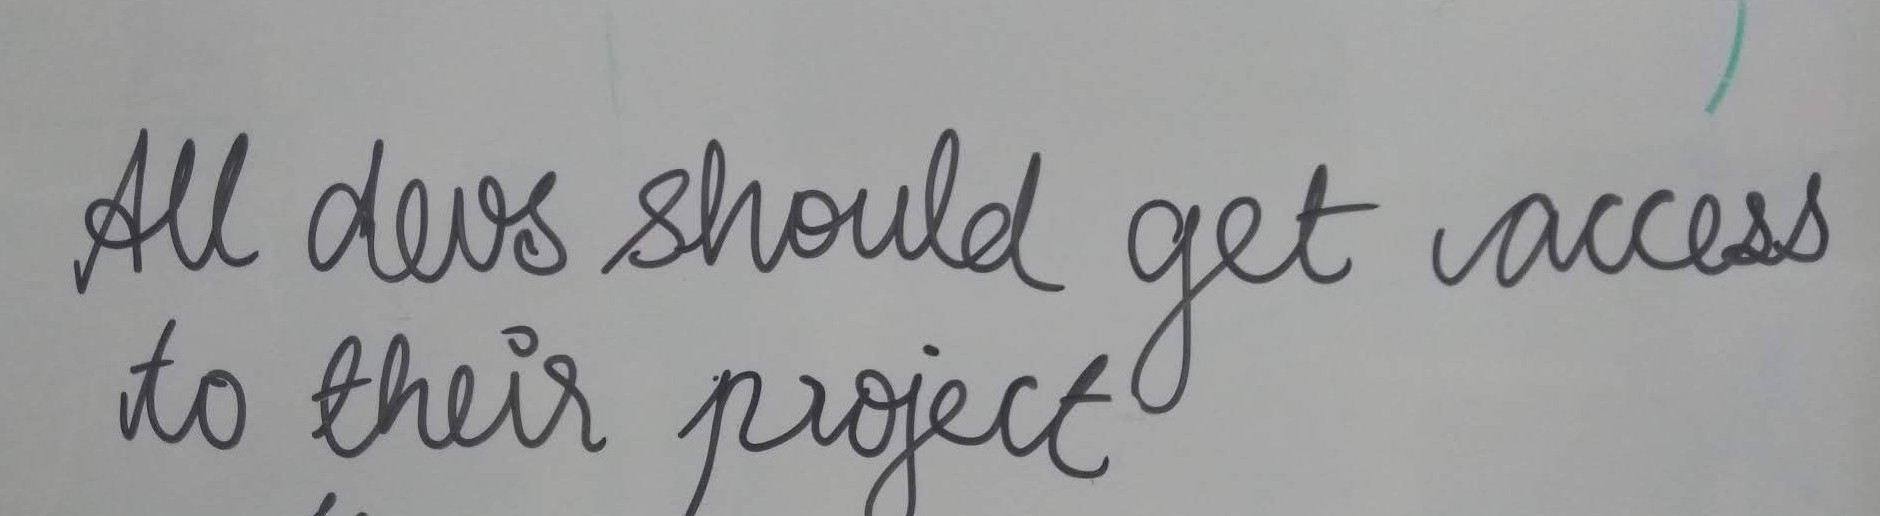 All devs should get access
to their project